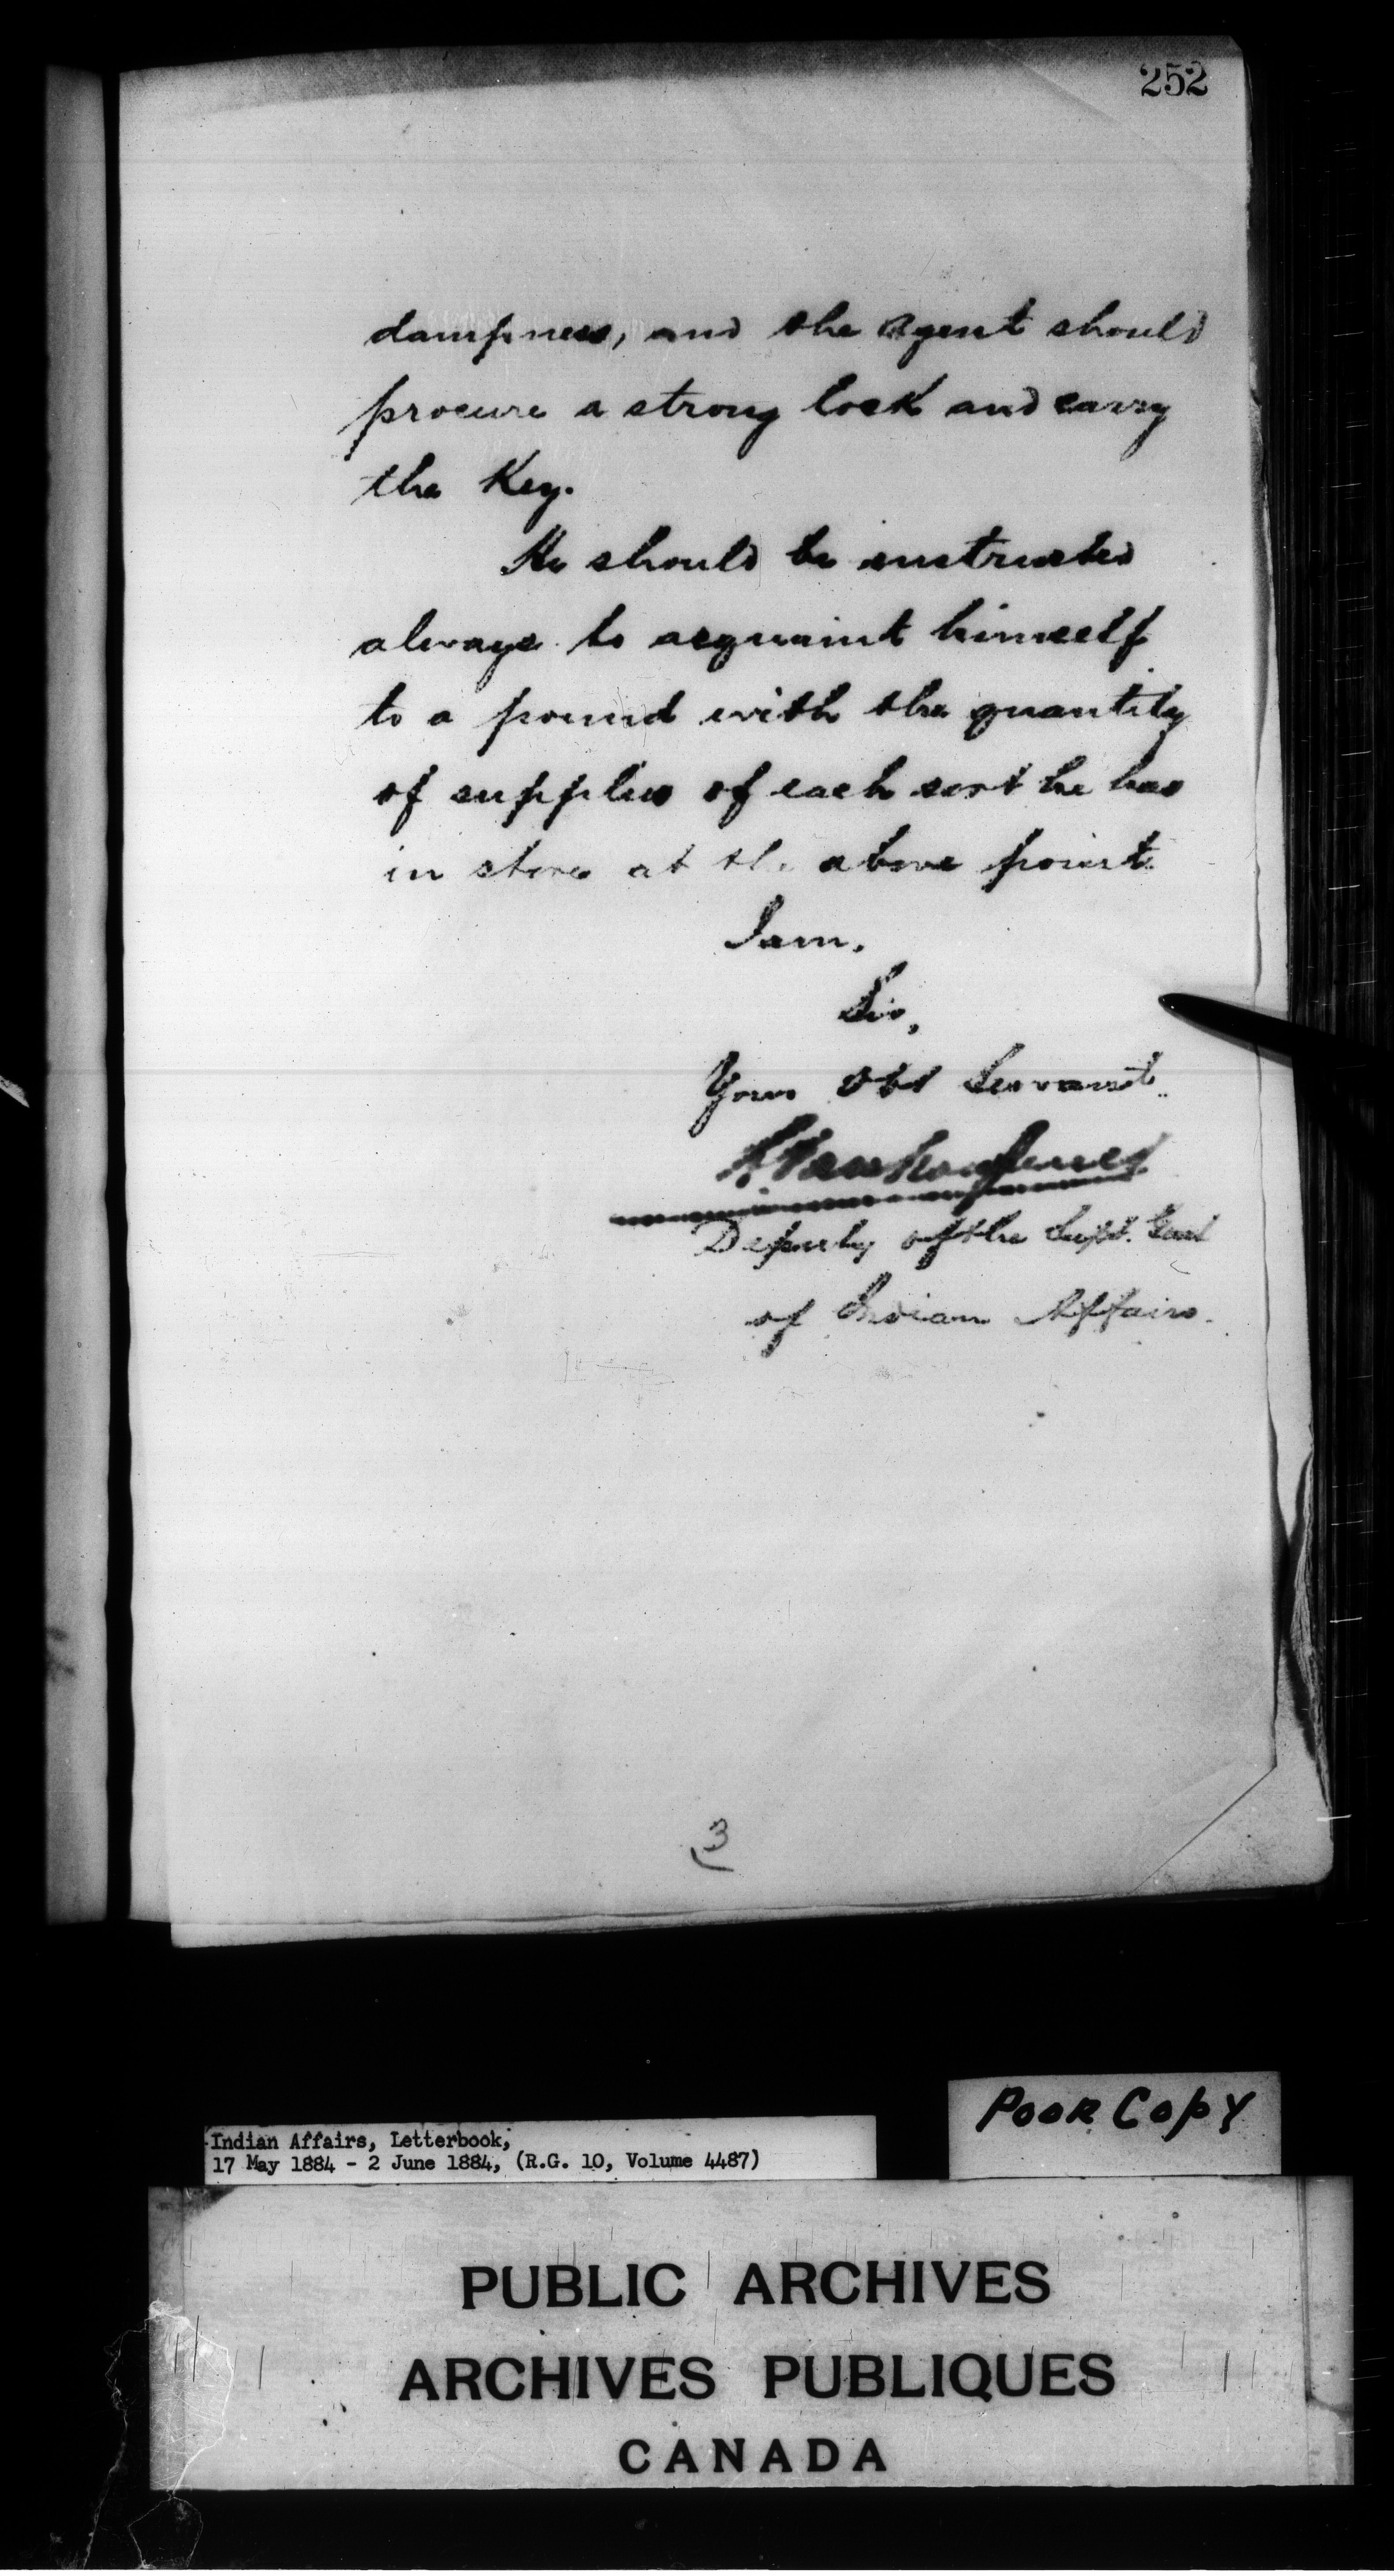 252
dampness, and the Agent should
procure a strong lock and carry
the Key.
He should be instructed
always to acquaint himself
to a pound with the quantity
of supplies of each sort he has
in store at the above point.
I am,
Sir,
Your Obt Servant
L Vankoughnet
Deputy of the Supt. Genl
of Indian Affairs.
3
POOR COPY
Indian Affairs, Letterbook,
17 May 1884 - 2 June 1884, (R.G. 10, Volume 4487)
PUBLIC ARCHIVES
ARCHIVES PUBLIQUES
CANADA